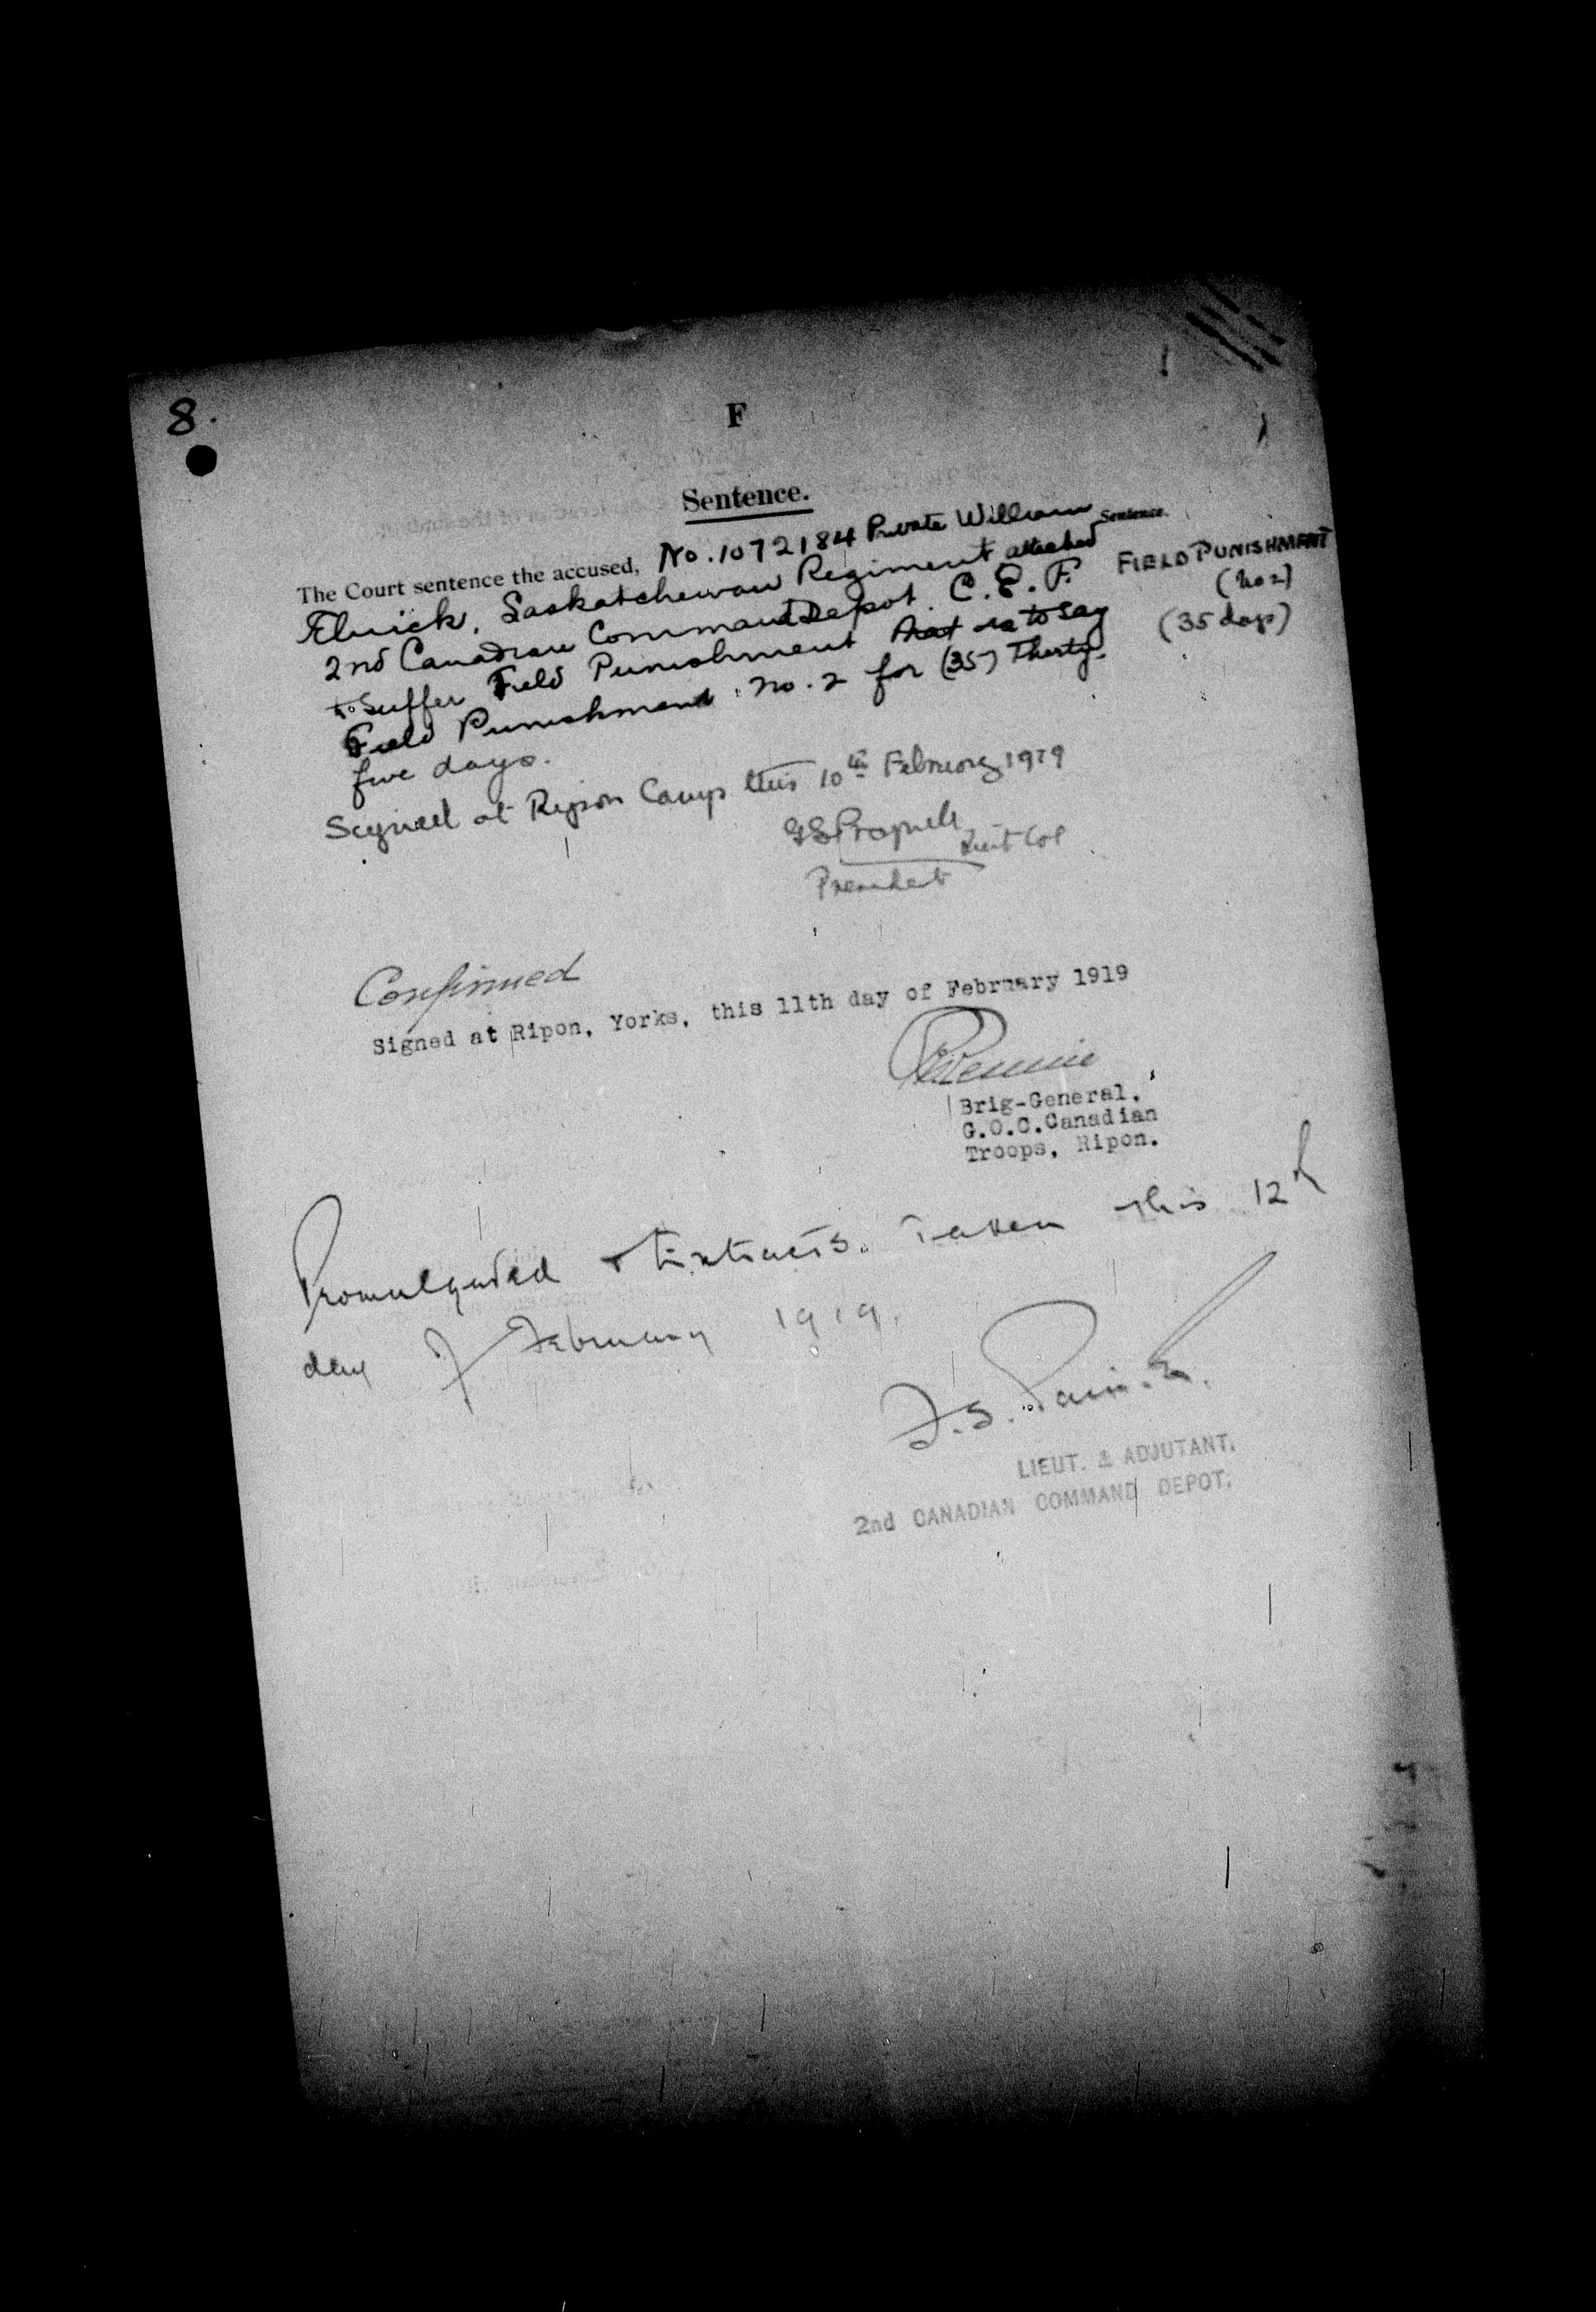 8.
F
Sentence.
The Court sentence the accused, No. 1072184 Private William
Elwick, Saskatchewan Regiment attached
2nd Canadian Command Depot. C.E.F.
to Suffer Field Punishment that is to say
Field Punishment No. 2 for (35) Thirty-
five days.
Sentence.
FIELD PUNISHMENT
(No 2)
(35 days)
Signed at Ripon Camp this 10th February 1919
Lieut Col
President
Confirmed
Signed at Ripon, Yorks, this 11th day of February 1919
Rennie
Brig-General.
G.O.C.Canadian
Troops, Ripon.
Promulgated & Extracts. Taken this 12th
day of February 1919.
LIEUT. & ADJUTANT.
2nd CANADIAN COMMAND DEPOT.